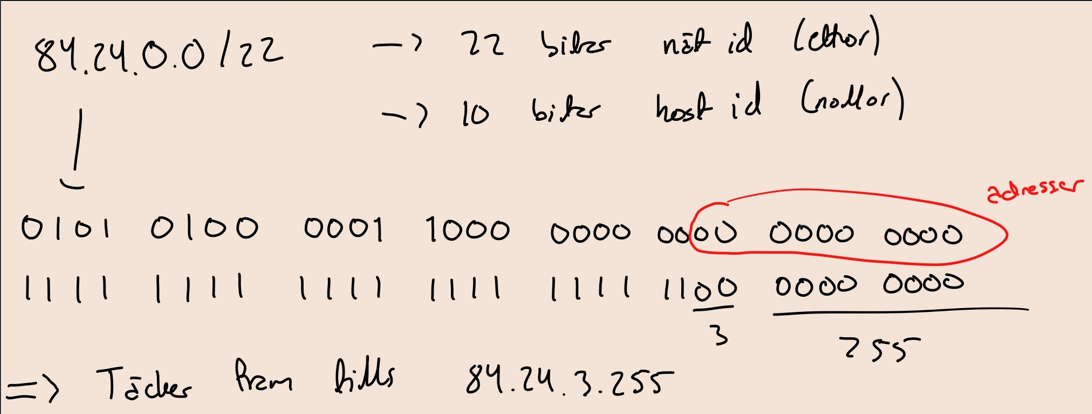 84.24.0.0/22 -> 22 bitar nät id (ettor)
-> 10 bitar host id (nollor)
adresser
0101 0100 0001 1000 0000 0000 0000 0000
1111 1111 1111 1111 1111 1100 0000 0000
3 255
=> Täcker fram tills 84.24.3.255